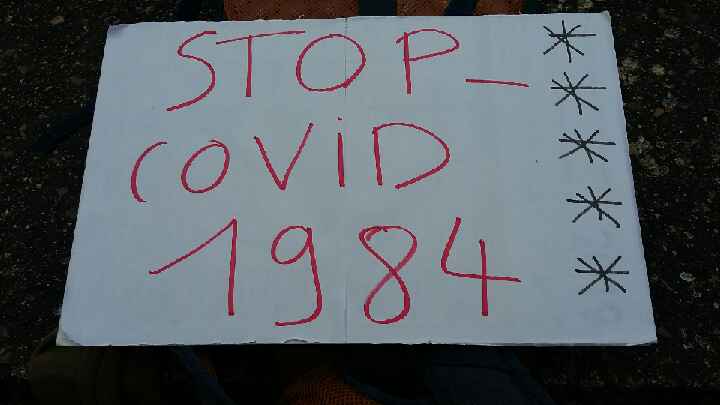 STOP_
COViD
1984